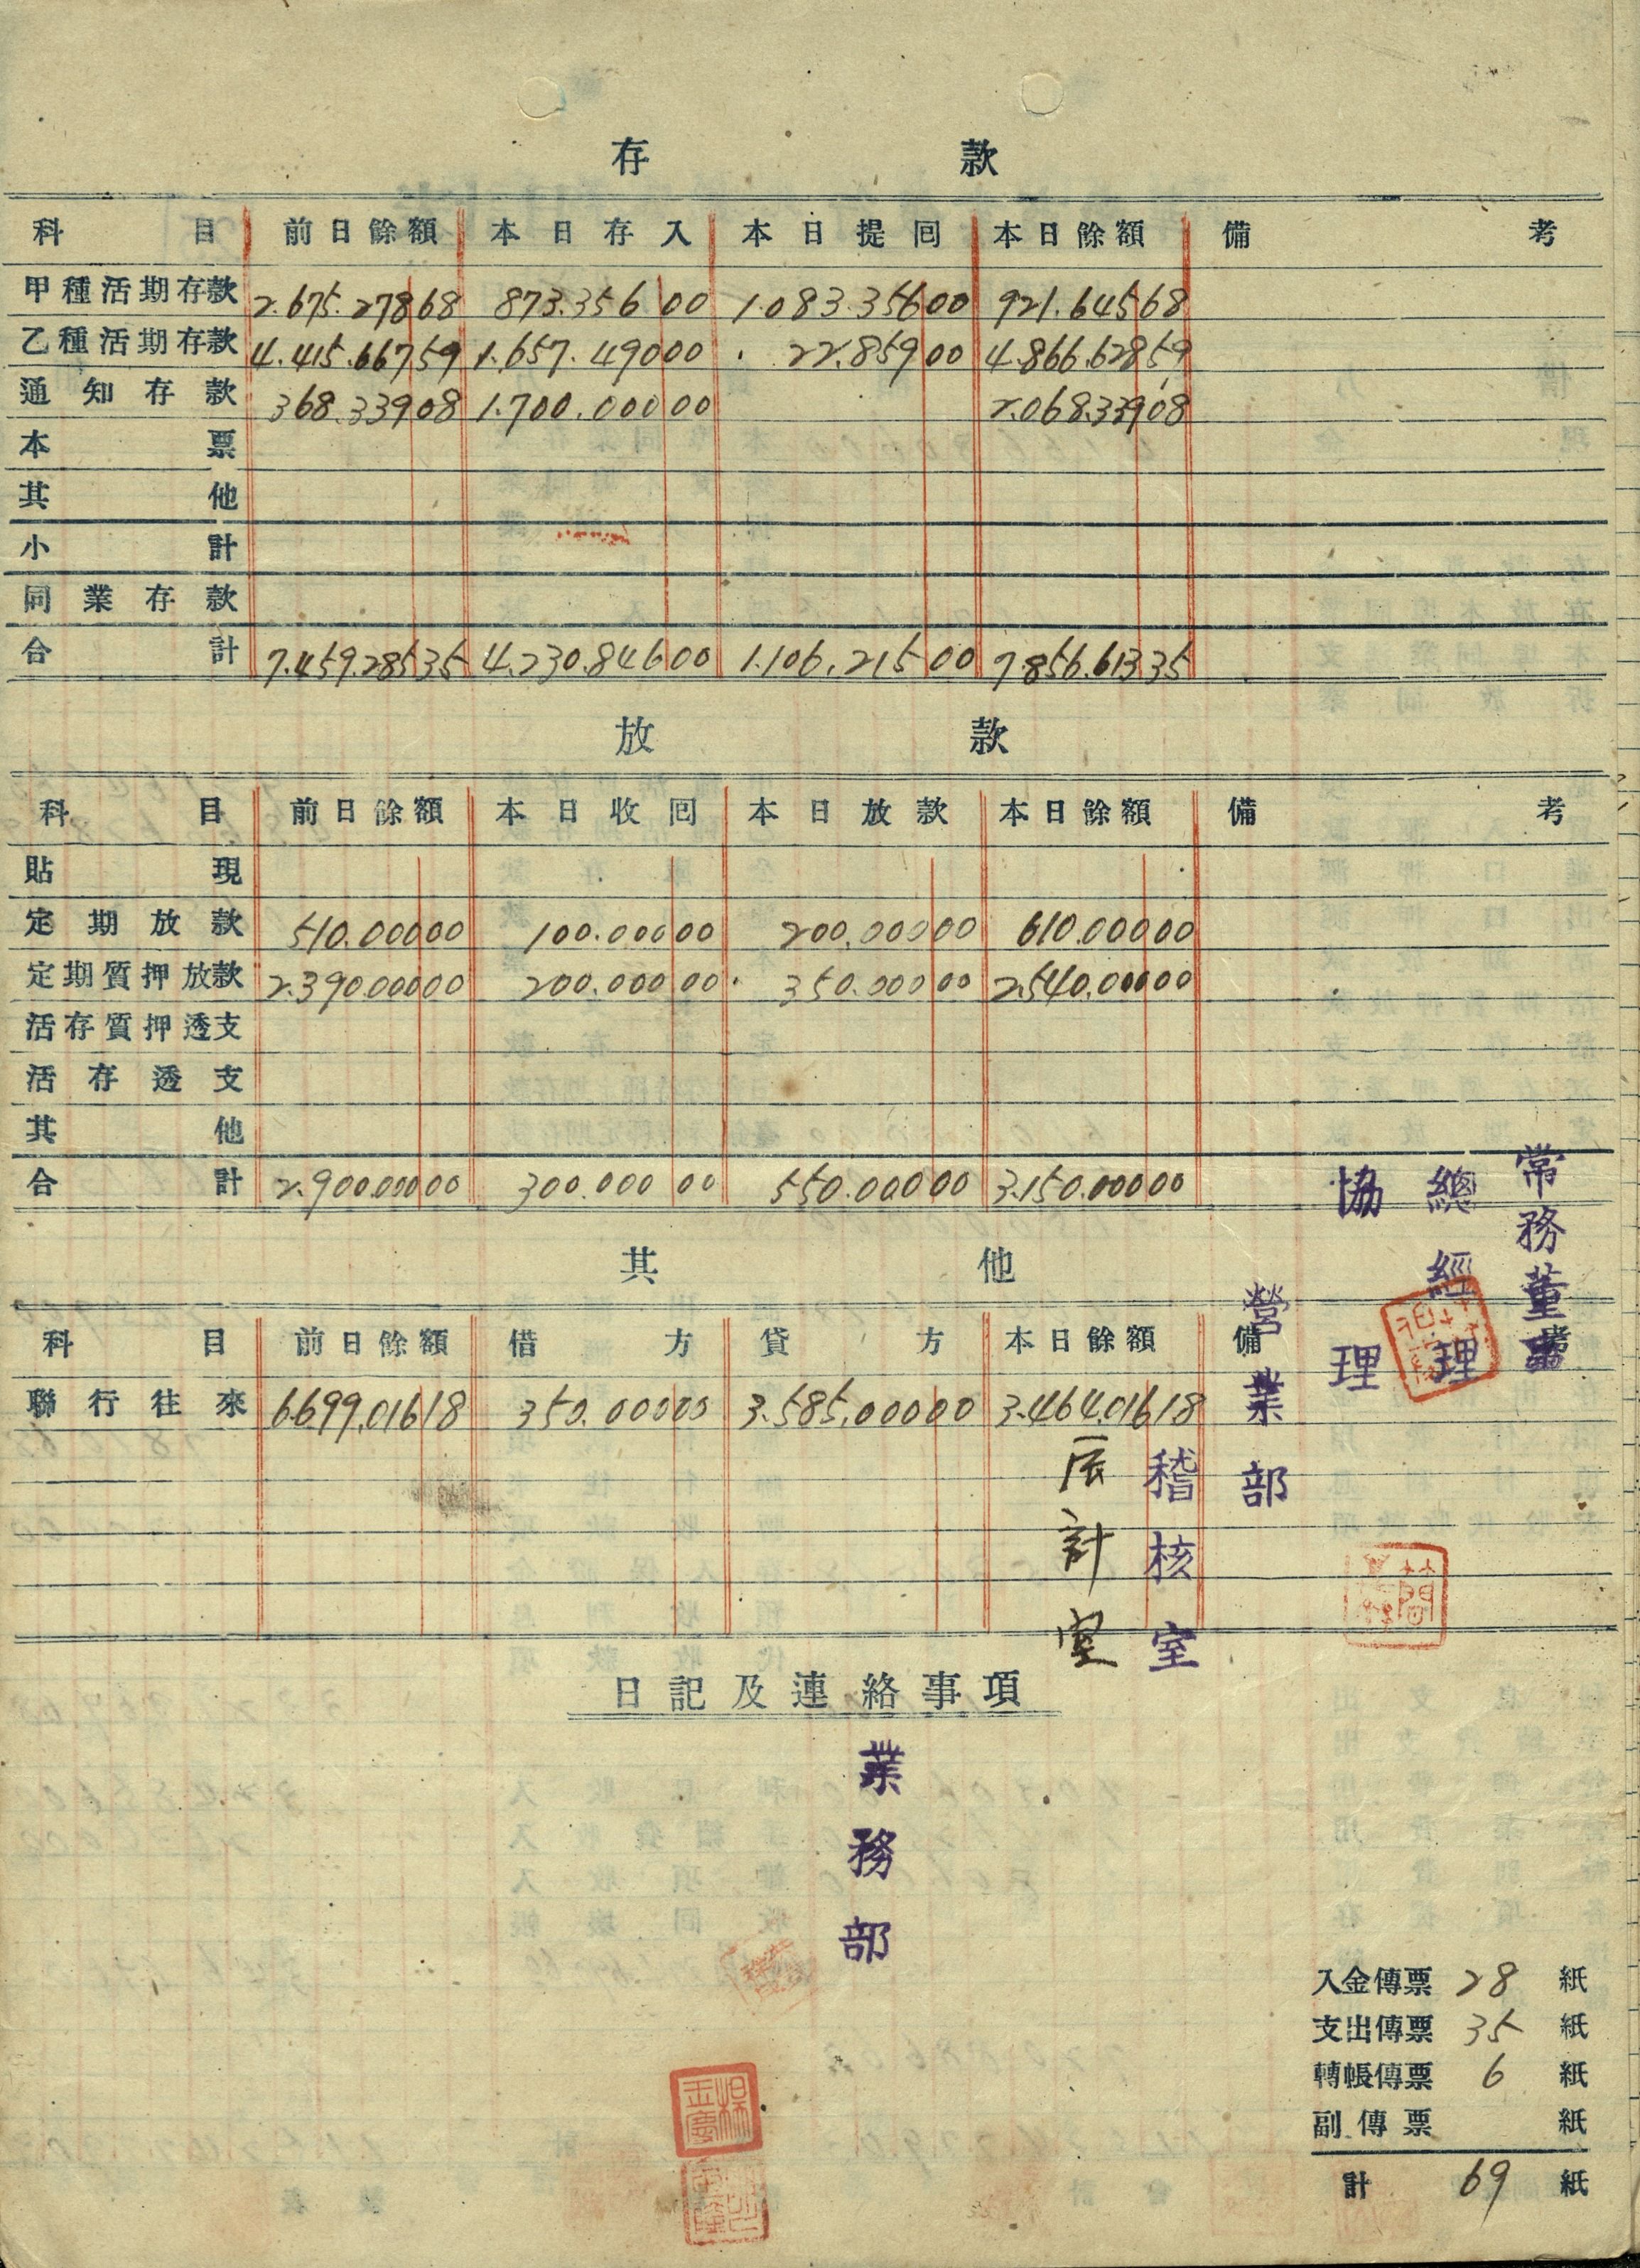 存款
科目 前日餘額 本日存入 本日提回 本日餘額 備考
甲種活期存款 2.675.278 68 873.356 00 1.083.356 00 921.645 68
乙種活期存款 4.415.667 59 1.657.490 00 22.859 00 4.866.628 59
通知存款 368.339 08 1.700.000 00 2.068.339 08
本票
其他
小計
同業存款
合計 7.459.285 35 4.230.846 00 1.106.215 00 7.856.613 35
放款
科目 前日餘額 本日收回 本日放款 本日餘額 備考
貼現
定期放款 510.000 00 100.000 00 200.000 00 610.000 00
定期質押放款 2.390.000 00 200.000 00 350.000 00 2.540.000 00
活存質押透支
活存透支
其他
合計 2.900.000 00 300.000 00 550.000 00 3.150.000 00
其他
科目 前日餘額 借方 貸方 本日餘額 備考
聯行往來 6.699.016 18 350.000 00 3.585.000 00 3.464.016 18
常務董事
總經理
協理
營業部
稽核室
計室
日記及連絡事項
業務部
入金傳票 28 紙
支出傳票 35 紙
轉帳傳票 6 紙
副傳票 紙
計 69 紙